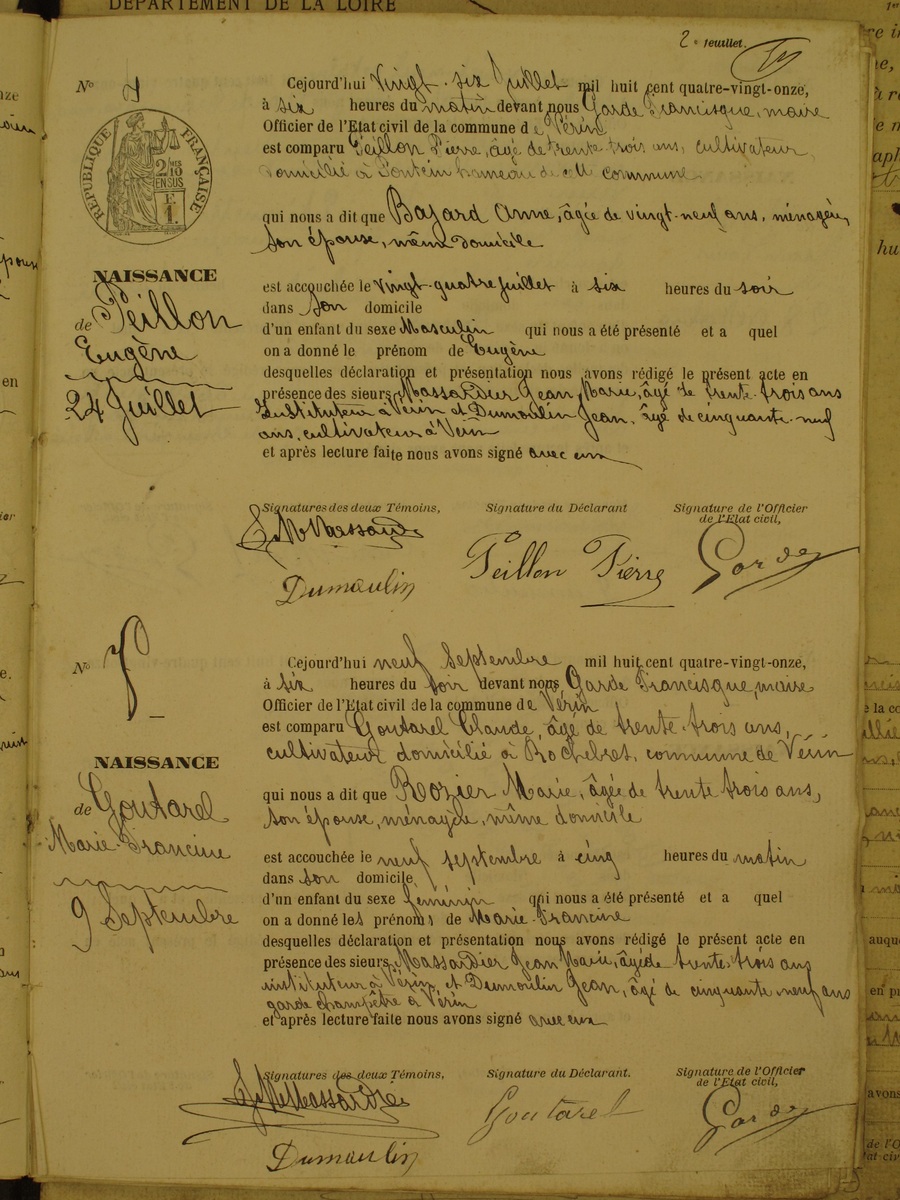 DÉPARTEMENT DE LA LOIRE
2e feuillet.
No 7
Cejourd'hui Vingt-six Juillet mil huit cent quatre-vingt-onze,
à six heures du matin devant nous Garde Francisque, maire
Officier de l'Etat civil de la commune de Vérin
est comparu Peillon Pierre, âgé de trente-trois ans, cultivateur
domicilié à hameau de commune
RÉPUBLIQUE FRANÇAISE
2/10
EN SUS
F
1.
qui nous a dit que Bajard Anne, âgée de vingt-neuf ans, ménagère,
son épouse, même domicile
NAISSANCE
de Peillon
Eugène
24 Juillet
est accouchée le vingt-quatre juillet à six heures du soir
dans son domicile
d'un enfant du sexe Masculin qui nous a été présenté et a quel
on a donné le prénom de Eugène
desquelles déclaration et présentation nous avons rédigé le présent acte en
présence des sieurs Massardier Jean Marie, âgé de trente-trois ans
Instituteur à Vérin et Dumoulin Jean, âgé de cinquante-neuf
ans, cultivateur à Vérin
et après lecture faite nous avons signé avec eux
Signatures des deux Témoins, Signature du Déclarant Signature de l'Officier
de l'Etat civil,
Peillon Pierre Garde
Dumoulin
No 8
Cejourd'hui neuf Septembre mil huit cent quatre-vingt-onze,
à six heures du soir devant nous Garde Francisque, maire
Officier de l'Etat civil de la commune de Vérin
est comparu Goutarel Claude, âgé de trente-trois ans,
cultivateur domicilié à commune de Vérin
NAISSANCE
de Goutarel
Marie-Francine
9 Septembre
qui nous a dit que Rozier Marie, âgée de trente trois ans,
son épouse, ménagère, même domicile
est accouchée le neuf septembre à cinq heures du matin
dans son domicile
d'un enfant du sexe féminin qui nous a été présenté et a quel
on a donné les prénoms de Marie-Francine
desquelles déclaration et présentation nous avons rédigé le présent acte en
présence des sieurs Massardier Jean Marie, âgé de trente-trois ans
instituteur à Vérin, et Dumoulin Jean, âgé de cinquante neuf ans
garde champêtre à Vérin
et après lecture faite nous avons signé avec eux
Signatures des deux Témoins, Signature du Déclarant. Signature de l'Officier
de l'Etat civil,
Massardier Goutarel Garde
Dumoulin